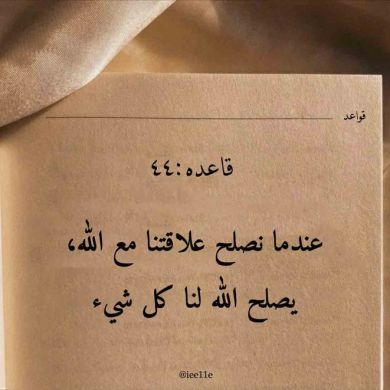 قواعد
قاعده:٤٤
عندما نصلح علاقتنا مع الله،
يصلح الله لنا كل شيء
@iee11e